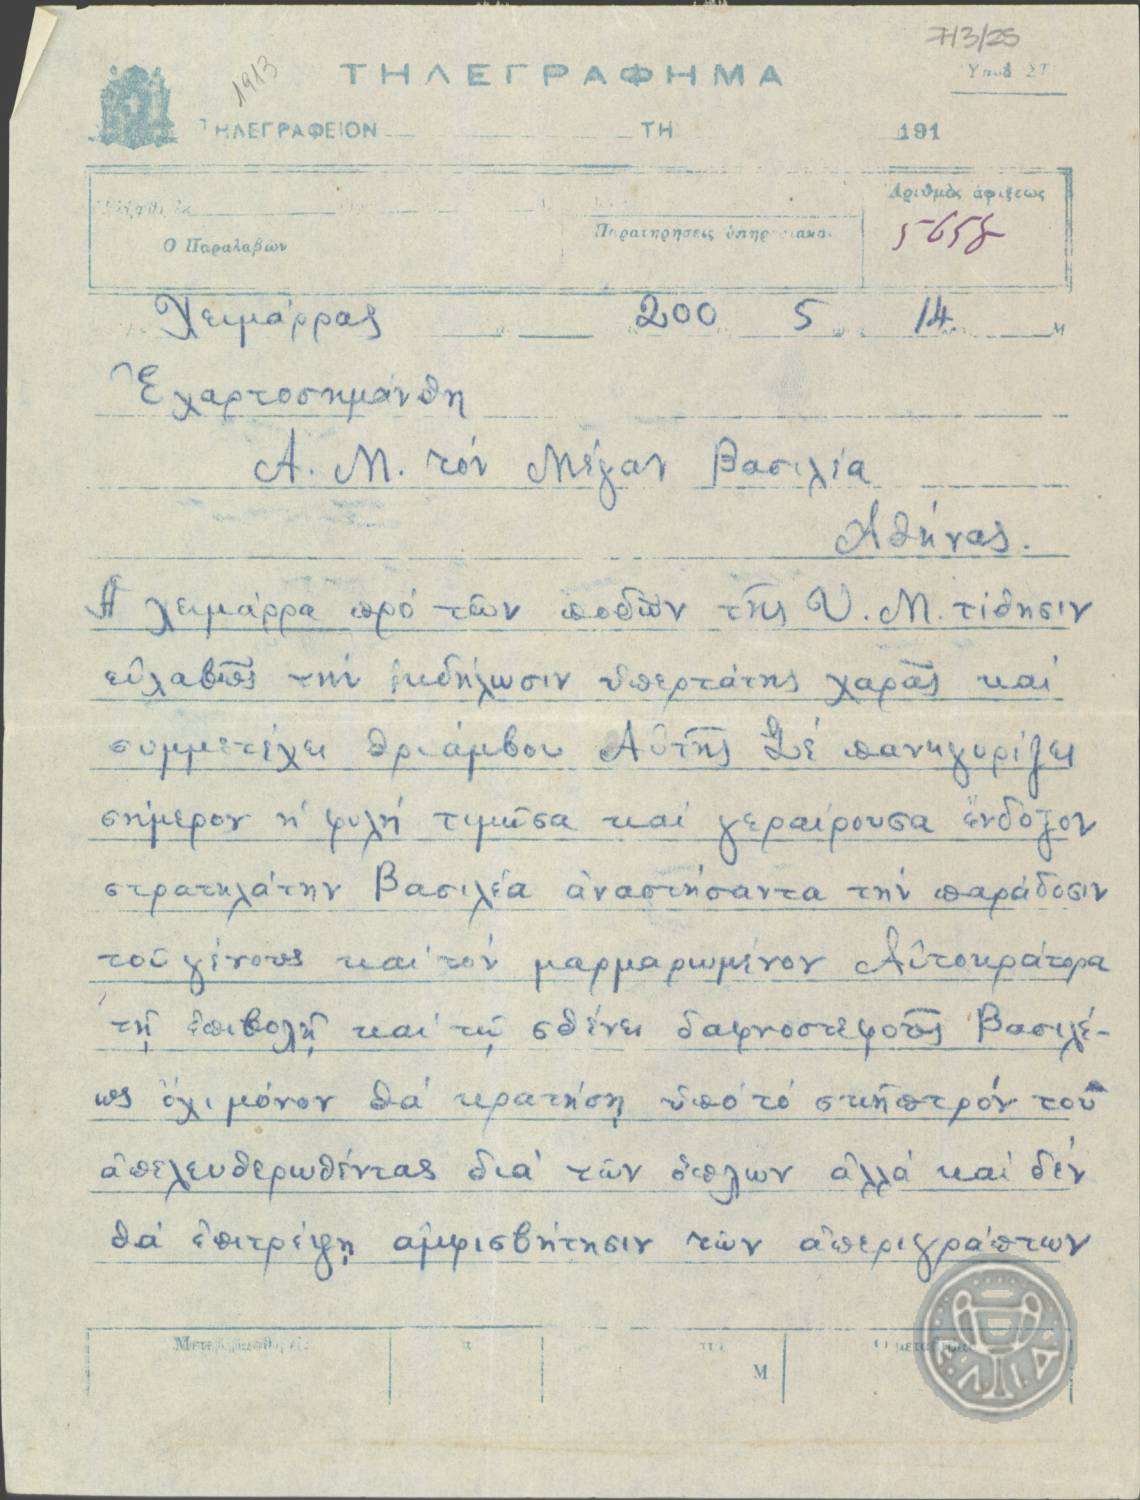 713/25
1913
ΤΗΛΕΓΡΑΦΗΜΑ
ΤΗΛΕΓΡΑΦΕΙΟΝ ΤΗ 191
Ἀριθμὸς ἀφίξεως
Παρατηρήσεις ὑπηρεσιακαὶ
Ο Παραλαβών
Χειμάρρας 200 5 14 Μ
Ἐχαρτοσημάνθη
Α. Μ. τόν Μέγαν Βασιλέα
Ἀθήνας.
Ἡ Χειμάρρα πρό τῶν ποδῶν τῆς Υ. Μ. τίθησιν
εὐλαβῶς τήν ἐκδήλωσιν ὑπερτάτης χαρᾶς καί
συμμετέχει θριάμβου Αὐτῆς Σέ πανηγυρίζει
σήμερον ἡ φυλή τιμῶσα καί γεραίρουσα ἔνδοξον
στρατηλάτην Βασιλέα ἀναστήσαντα τήν παράδοσιν
τοῦ γένους καί τόν μαρμαρωμένον Αὐτοκράτορα
τῇ ἐπιβολῇ καί τῷ σθένει δαφνοστεφοῦς Βασιλέ-
ως ὄχι μόνον θά κρατήσῃ ὑπό τό σκῆπτρόν του
ἀπελευθερωθέντας διά τῶν ὅπλων ἀλλά καί δέν
θά ἐπιτρέψῃ ἀμφισβήτησιν τῶν ἀπεριγράπτων
Μετεβιβάσθη εἰς Μ
Ε.Λ.Ι.Α